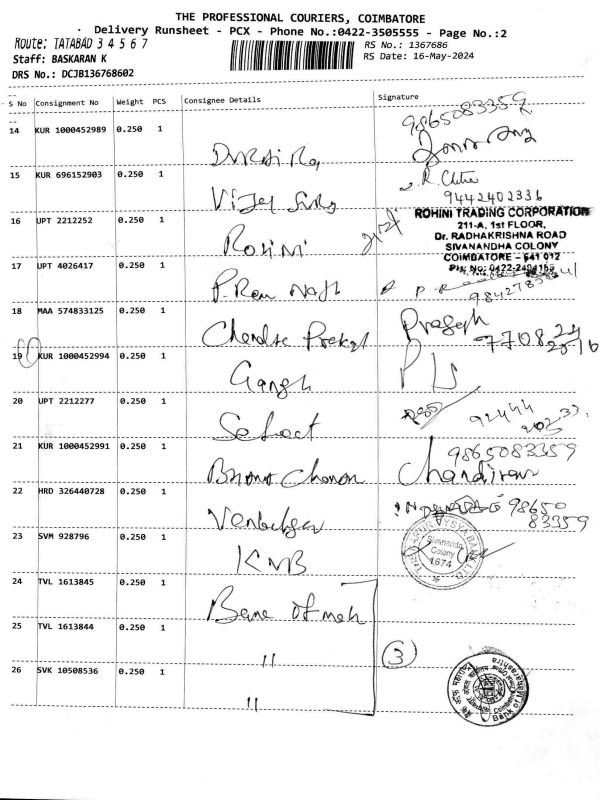 THE PROFESSIONAL COURIERS, COIMBATORE
Delivery Runsheet - PCX - Phone No.:0422-3505555 - Page No.:2
Route: TATABAD 3 4 5 6 7
RS No.: 1367686
Staff: BASKARAN K
RS Date: 16-May-2024
DRS No.: DCJB136768602
S No Consignment No Weight PCS Consignee Details Signature
9865083359
14 KUR 1000452989 0.250 1
15 KUR 696152903 0.250 1
Vijay
R. Chitra
9442402336
16 UPT 2212252 0.250 1
Rohini
ROHINI TRADING CORPORATION
211-A, 1st FLOOR,
Dr. RADHAKRISHNA ROAD
SIVANANDHA COLONY
COIMBATORE - 641 012
17 UPT 4026417 0.250 1
P. Ram Nath
18 MAA 574833125 0.250 1
19 KUR 1000452994 0.250 1
Ganesh
20 UPT 2212277 0.250 1
Select
21 KUR 1000452991 0.250 1
9865083359
22 HRD 326440728 0.250 1
98650
83359
23 SVM 928796 0.250 1
KVB
Sivananda
Colony
1674
24 TVL 1613845 0.250 1
Bank of mah
25 TVL 1613844 0.250 1
"
3
26 SVK 10508536 0.250 1
"
Bank of Maharashtra